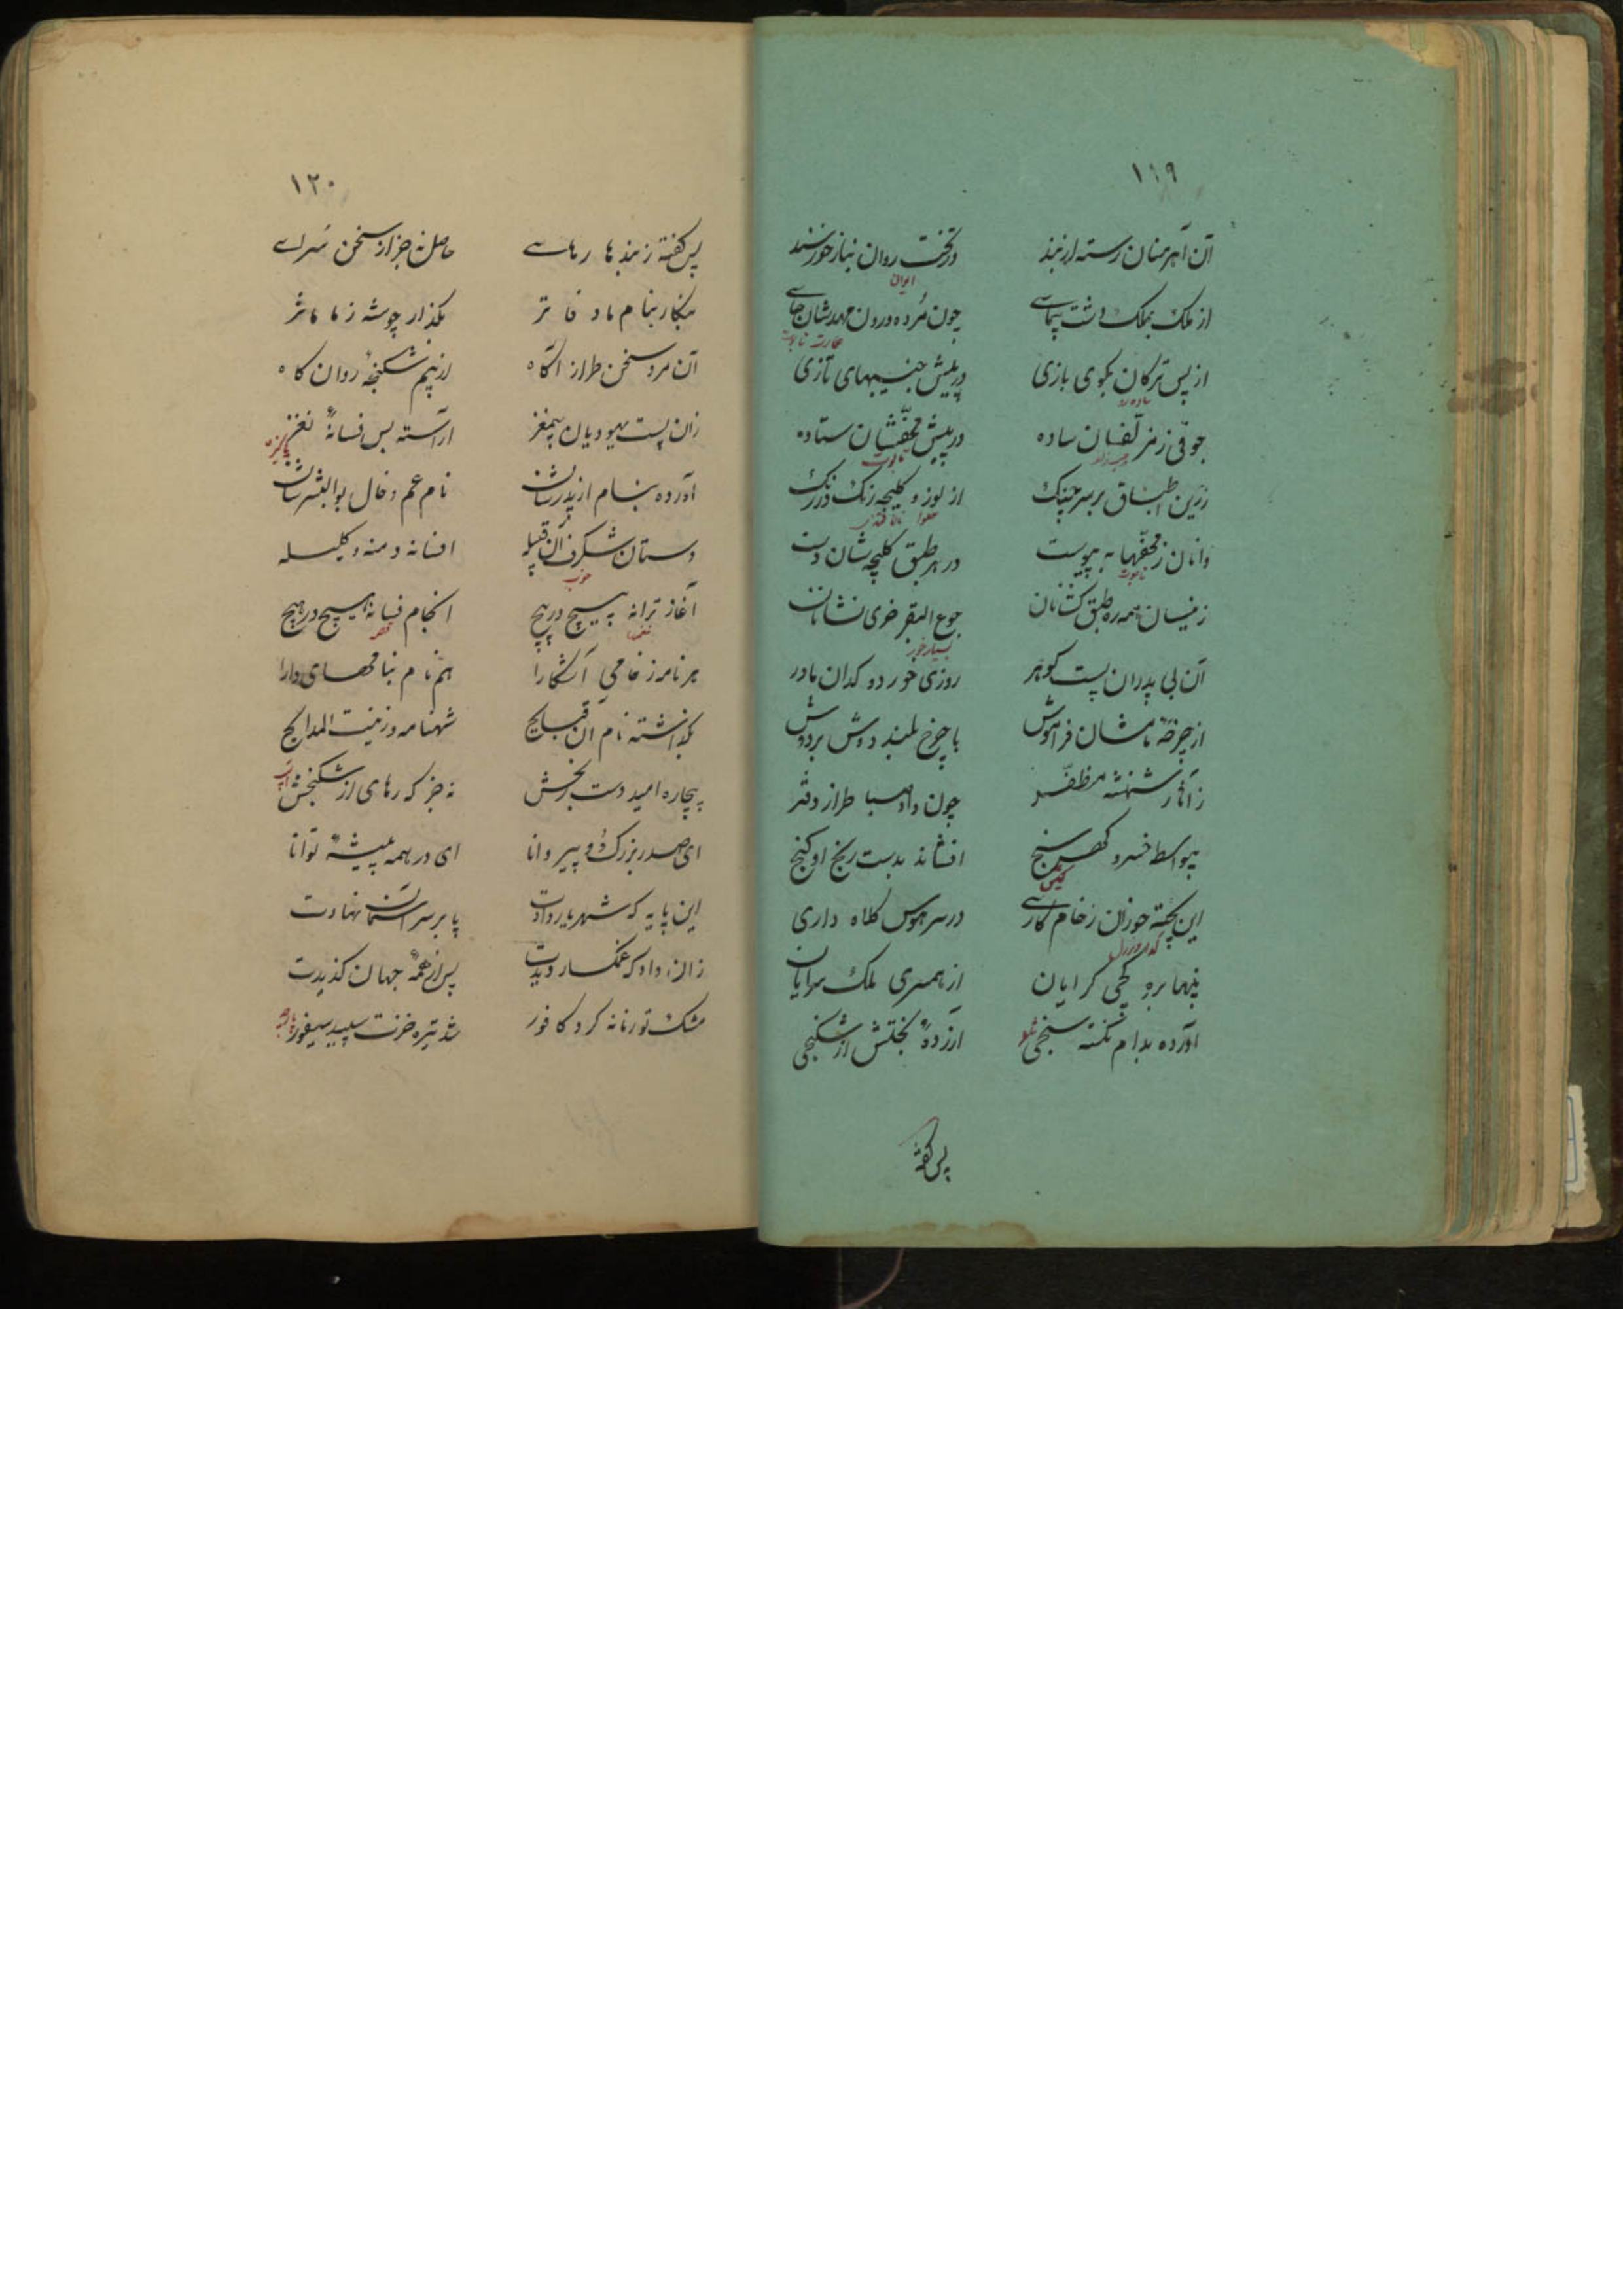 ۱۱۹
آن آهرمنان رسته از بند در تخت روان بناز خورسند
ایران
از ملک بملک دشت پیمای چون مرده درون مهدشان جای
از پس ترکان بکوی بازی در پیش جنیبهای تازی
ساده
جوقی زمزلفان ساده در پیش محفّشان ستاده
تابوت
زرین اطباق بر سر چنک از لوز و کلیجه رنک در رنک
حلوا نان قندی
وانان ز محفّها به پیوست در هر طبق کلیچه شان دست
تابوت
زینسان همه ره طبق کشانان جوع البقر خری نشانان
بسیار خور
آن بی پدران پست کوهر روزی خورده کدان مادر
از چرخهٔ مامشان فراموش با چرخ بلند دوش بر دوش
زآثار شهنشه مظفّر چون داد صبا طراز دفتر
بیواسطه خسرو کهر سنج افشاند بدست رنج او کنج
این پخته خوران ز خام کاری در سر هوس کلاه داری
پنهان بره کجی کرایان از همسری ملک سرایان
آورده بدام نکته سنجی آزردهٔ بختش از شکنجی
پس کفته
۱۲۰
پس کفته ز بندها رهای حاصل نه جز از سخن سرای
بنکار بنام ما دفاتر بکذار چو شه ز ما مآثر
آن مرد سخن طراز آگاه از بیم شکنجهٔ روان کاه
زان پست یهودیان بیمغز آراسته بس فسانهٔ نغز
پاکیزه
آورده بنام از پدرشان نام عم و خال بوالبشرشان
دستان شکرف آن قبیله افسانه دمنه و کلیله
خوب
آغاز ترانه پیچ در پیچ انجام فسانه هیچ در هیچ
نغمها قصه
هر نامه ز خامی آشکارا هم نام بنامهای دارا
بکذاشته نام آن قبایح شهنامه و زینت المدایح
بیچاره امید دست رنجش نه جز که رهای از شکنجش
ای صدر بزرک و پیر دانا ای در همه پیشهٔ توانا
این پایه که شهریار دادت پا بر سر آسمان نهادت
زان داد که غمکسار دیدت پس از همهٔ جهان کزیدت
مشک تو زمانه کرد کافور شد تیره خزت سپید سیفور